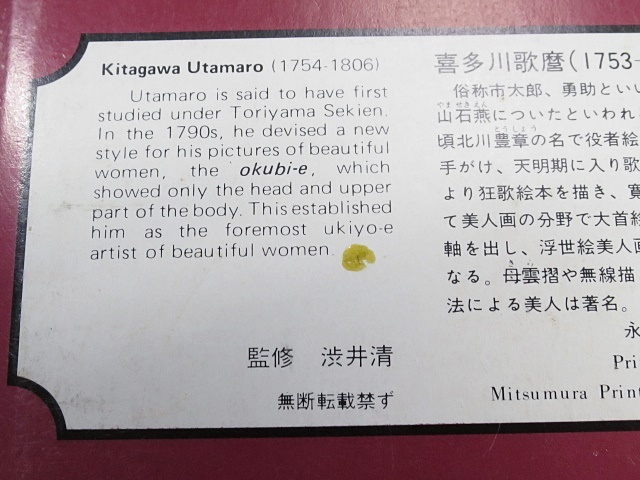 Kitagawa Utamaro (1754-1806)
Utamaro is said to have first
studied under Toriyama Sekien.
In the 1790s, he devised a new
style for his pictures of beautiful
women, the okubi-e, which
showed only the head and upper
part of the body. This established
him as the foremost ukiyo-e
artist of beautiful women.
監修 渋井清
無断転載禁ず
喜多川歌麿(1753-
俗称市太郎、勇助とい
やま せきえん
山石燕についたといわれ
とうしょう
頃北川豊章の名で役者絵
手がけ、天明期に入り歌
より狂歌絵本を描き、寛
て美人画の分野で大首絵
軸を出し、浮世絵美人画
なる。母雲摺や無線描
法による美人は著名。
永
Pri
Mitsumura Print